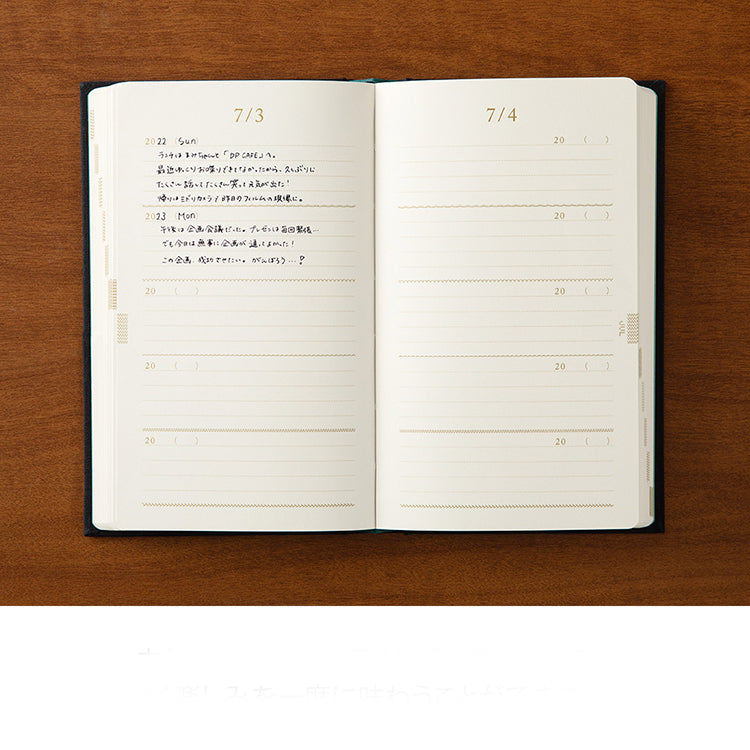 7/3
2022 (Sun)
ランチはまみちゃんと「DP CAFE」へ。
最近ゆっくりお喋りできてなかったから、久しぶりに
たくさん話してたくさん笑って元気が出た!
帰りはミドリカメラ / 昨日のフィルムの現像に。
2023 (Mon)
午後は企画会議だった。プレゼンは毎回緊張…
でも今日は無事に企画が通ってよかった!
この企画、成功させたい。がんばろう…!
20 ( )
20 ( )
20 ( )
7/4
20 ( )
20 ( )
20 ( )
20 ( )
20 ( )
JUL
楽しみを一度に味わうことができ